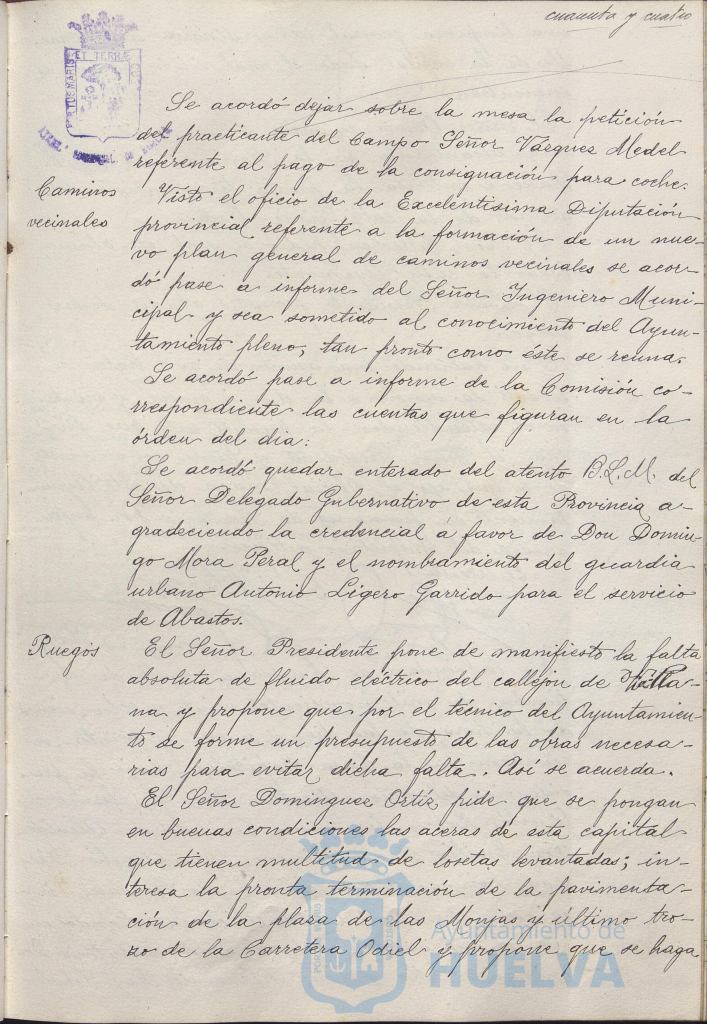 cuarenta y cuatro
PORTUS MARIS ET TERRAE CUSTODIA
Se acordó dejar sobre la mesa la petición
del practicante del Campo Señor Vázquez Medel
referente al pago de la consignación para coche.
Caminos
vecinales
Visto el oficio de la Excelentisima Diputación
provincial referente a la formación de un nue-
vo plan general de caminos vecinales se acor-
dó pase a informe del Señor Ingeniero Muni-
cipal y sea sometido al conocimiento del Ayun-
tamiento pleno, tan pronto como éste se reuna.
Se acordó pase a informe de la Comisión co-
rrespondiente las cuentas que figuran en la
órden del dia:
Se acordó quedar enterado del atento B.L.M. del
Señor Delegado Gubernativo de esta Provincia a-
gradeciendo la credencial á favor de Don Domin-
go Mora Peral y el nombramiento del guardia
urbano Antonio Ligero Garrido para el servicio
de Abastos.
Ruegos
El Señor Presidente pone de manifiesto la falta
absoluta de fluido eléctrico del callejon de Villa-
na y propone que por el técnico del Ayuntamien-
to se forme un presupuesto de las obras necesa-
rias para evitar dicha falta. Así se acuerda.
El Señor Dominguez Ortíz pide que se pongan
en buenas condiciones las aceras de esta capital
que tienen multitud de losetas levantadas; in-
teresa la pronta terminación de la pavimenta-
ción de la plaza de las Monjas y último tro-
zo de la Carretera Odiel y propone que se haga
Ayuntamiento de
HUELVA